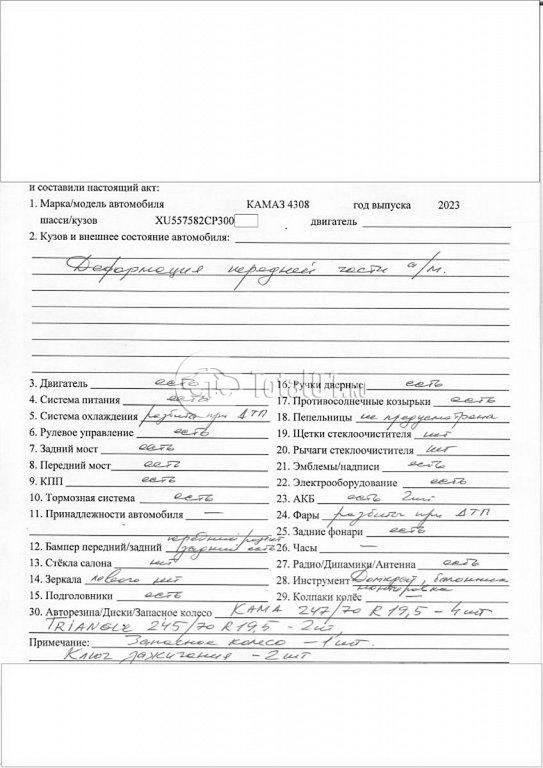 и составили настоящий акт:
1. Марка/модель автомобиля КАМАЗ 4308 год выпуска 2023
шасси/кузов XU557582CP300 двигатель
2. Кузов и внешнее состояние автомобиля:
Деформация передней части а/м.
3. Двигатель есть 16. Ручки дверные есть
4. Система питания есть 17. Противосолнечные козырьки есть
5. Система охлаждения разбита при ДТП 18. Пепельницы не предусмотрена
6. Рулевое управление есть 19. Щетки стеклоочистителя нет
7. Задний мост есть 20. Рычаги стеклоочистителя нет
8. Передний мост есть 21. Эмблемы/надписи есть
9. КПП есть 22. Электрооборудование есть
10. Тормозная система есть 23. АКБ есть 2шт
11. Принадлежности автомобиля — 24. Фары разбиты при ДТП
25. Задние фонари есть
12. Бампер передний/задний задний есть 26. Часы —
13. Стёкла салона нет 27. Радио/Динамики/Антенна есть
14. Зеркала левого нет 28. Инструмент Домкрат, балонник монтировка
15. Подголовники есть 29. Колпаки колёс —
30. Авторезина/Диски/Запасное колесо КАМА 247/70 R 19,5 - 4шт
TRIANGLE 245/70 R 19,5 - 2шт
Примечание: Запасное колесо - 1шт.
Ключ зажигания - 2шт
TotalOta.ru